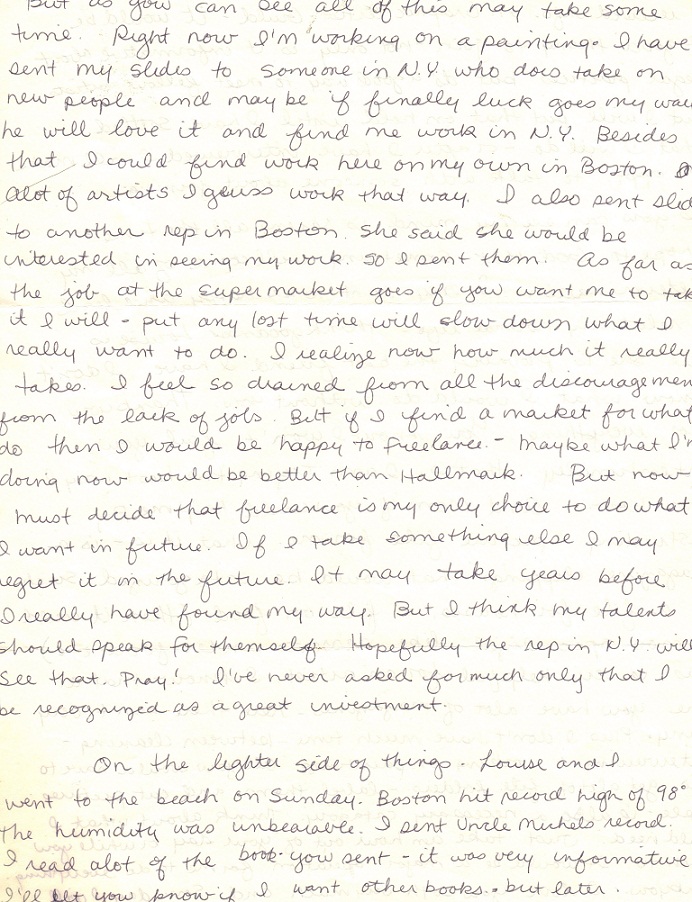 But as you can see all of this may take some
time. Right now I'm working on a painting. I have
sent my slides to someone in N.Y who does take on
new people and maybe if finally luck goes my way
he will love it and find me work in N.Y. Besides
that I could find work here on my own in Boston.
alot of artists I geuss work that way. I also sent slid
to another rep in Boston. She said she would be
interested in seeing my work. So I sent them. As far as
the job at the supermarket goes if you want me to tak
it I will - put any lost time will slow down what I
really want to do. I realize now how much it really
takes. I feel so drained from all the discouragemen
from the lack of jobs. But if I find a market for what
do then I would be happy to freelance. - Maybe what I'm
doing now would be better than Hallmark. But now
must decide that freelance is my only choice to do what
I want in future. If I take something else I may
egret it in the future. It may take years before
I really have found my way. But I think my talents
should speak for themself. Hopefully the rep in N.Y. will
see that. Pray! I've never asked for much only that I
be recognized as a great investment.
On the lighter side of things. Louise and I
went to the beach on Sunday. Boston hit record high of 98°
the humidity was unbearable. I sent Uncle Michels record.
I read alot of the book you sent - it was very informative
I'll let you know if I want other books. but later.